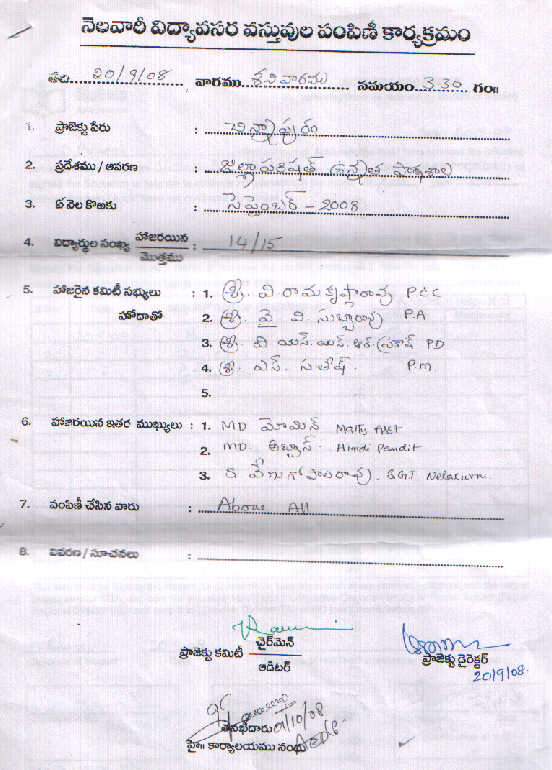 నెలవారీ విద్యావసర వస్తువుల పంపిణీ కార్యక్రమం
తేది. 20/9/08 , వారము. శనివారము సమయం. 3.30 గం॥
1. ప్రాజెక్టు పేరు : చిన్నాపురం
2. ప్రదేశము / ఆవరణ : జిల్లాపరిషత్ ఉన్నత పాఠశాల
3. ఏ నెల కొఱకు : సెప్టెంబర్ - 2008
4. విద్యార్థుల సంఖ్య హాజరయిన / మొత్తము : 14/15
5. హాజరైన కమిటీ సభ్యులు : 1. శ్రీ. వి. రామకృష్ణారావు PCC
హోదాతో 2. శ్రీ. వై. వి. సుబ్బారావు P.A
3. శ్రీ. టి యస్.యస్.ఆర్.ప్రకాష్ PD
4. శ్రీ. ఎస్. సతీష్. P.m
5.
6. హాజరయిన ఇతర ముఖ్యులు : 1. MD మోమిన్ Maths Asst
2. MD. అబ్బాస్. Hindi Pandit
3. వేణుగోపాలరావు. SGT
7. పంపిణీ చేసిన వారు : Above All
8. వివరణ / సూచనలు :
ప్రాజెక్టు కమిటీ చైర్‌మెన్
ఆడిటర్
ప్రాజెక్టు డైరెక్టర్
20/9/08.
తనఖీదారు 01/10/08
హై॥ కార్యాలయము సంస్థ